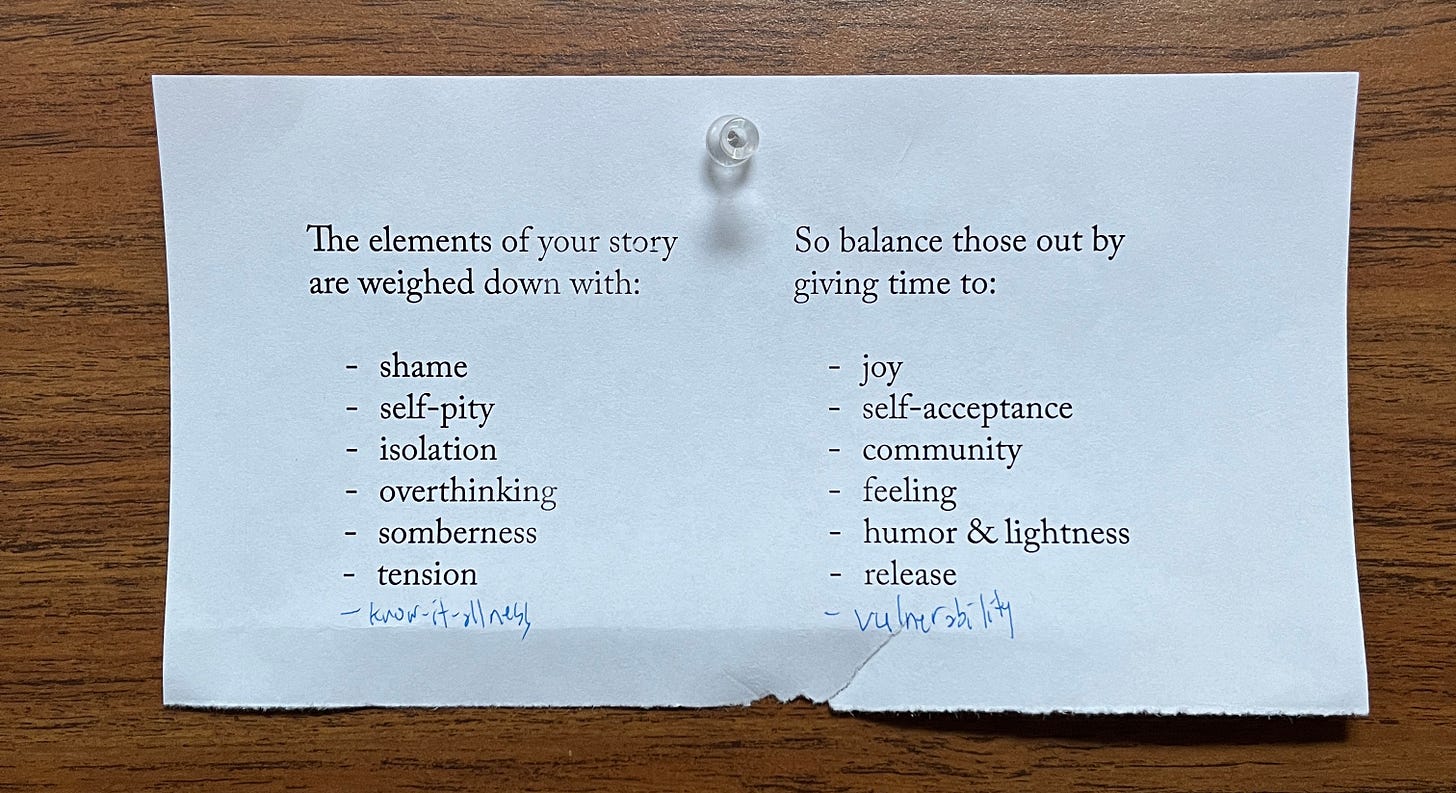 The elements of your story
are weighed down with:
- shame
- self-pity
- isolation
- overthinking
- somberness
- tension
- know-it-allness
So balance those out by
giving time to:
- joy
- self-acceptance
- community
- feeling
- humor & lightness
- release
- vulnerability